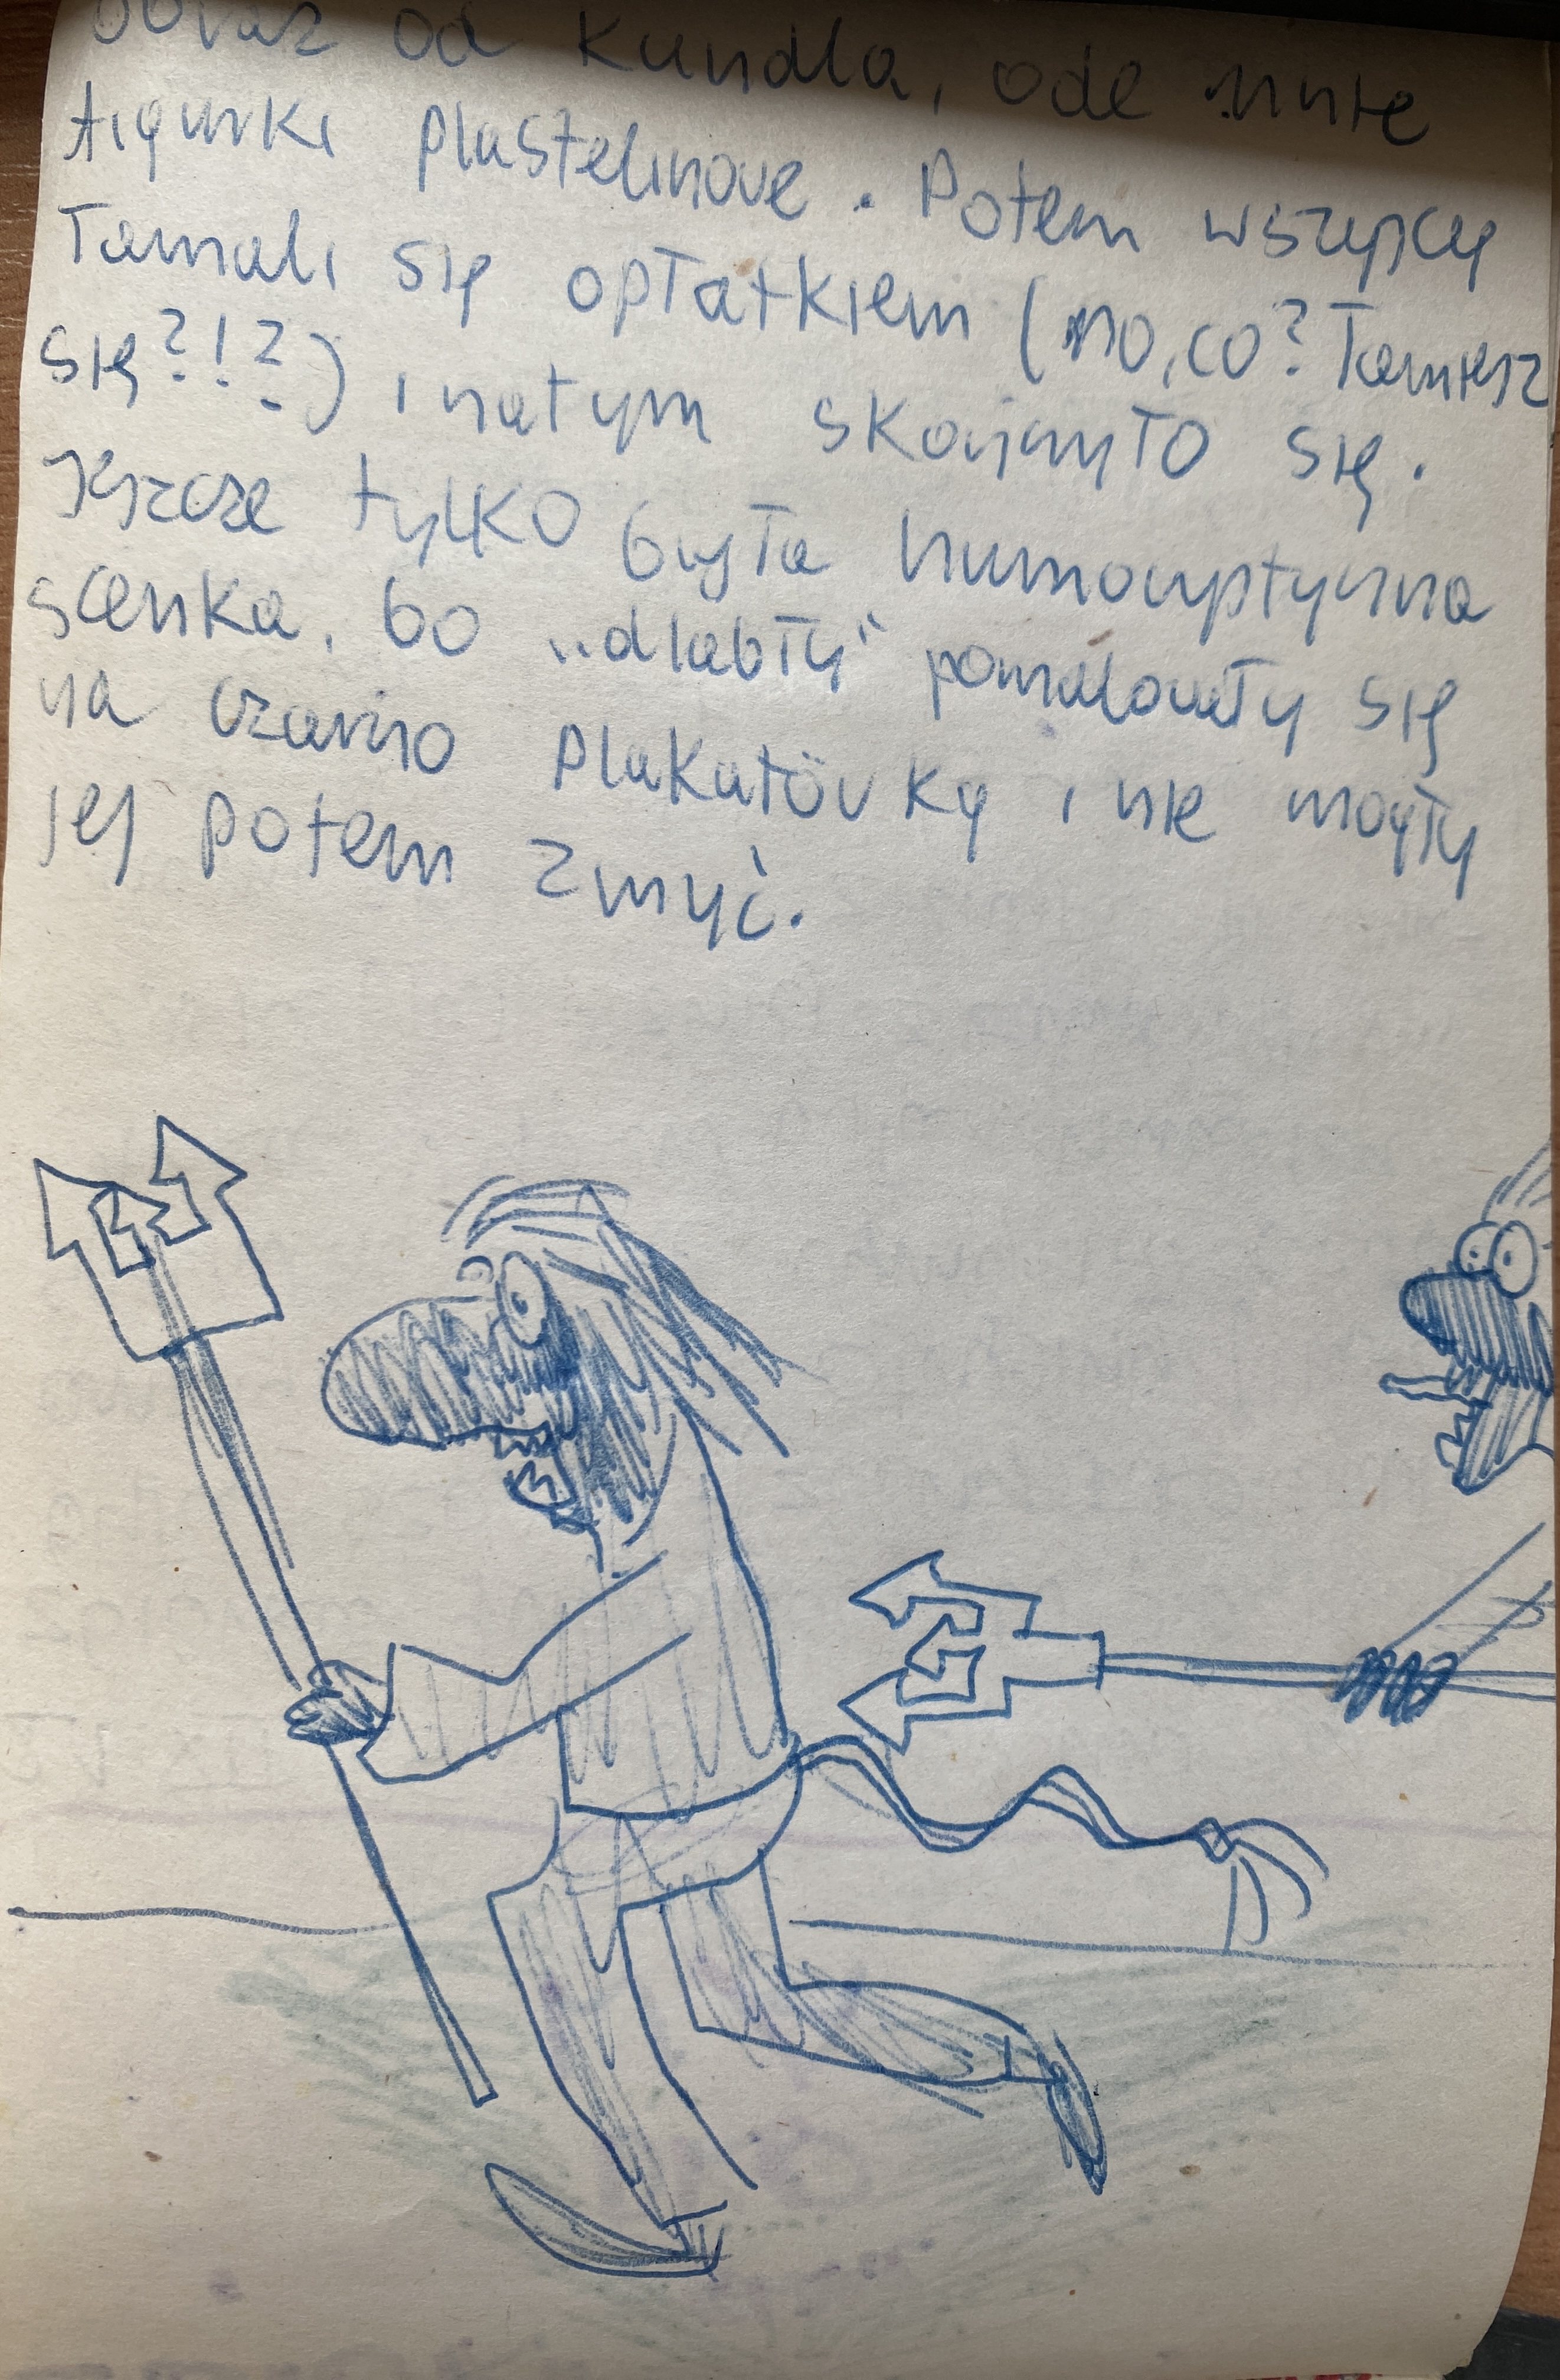 obraz od Kundla, ode mnie
figurki plastelinowe. Potem wszyscy
łamali się opłatkiem (no, co? Łamiesz
się?!?) i na tym skończyło się.
Jeszcze tylko była humorystyczna
scenka, bo „diabły" pomalowały się
na czarno plakatówką i nie mogły
jej potem zmyć.